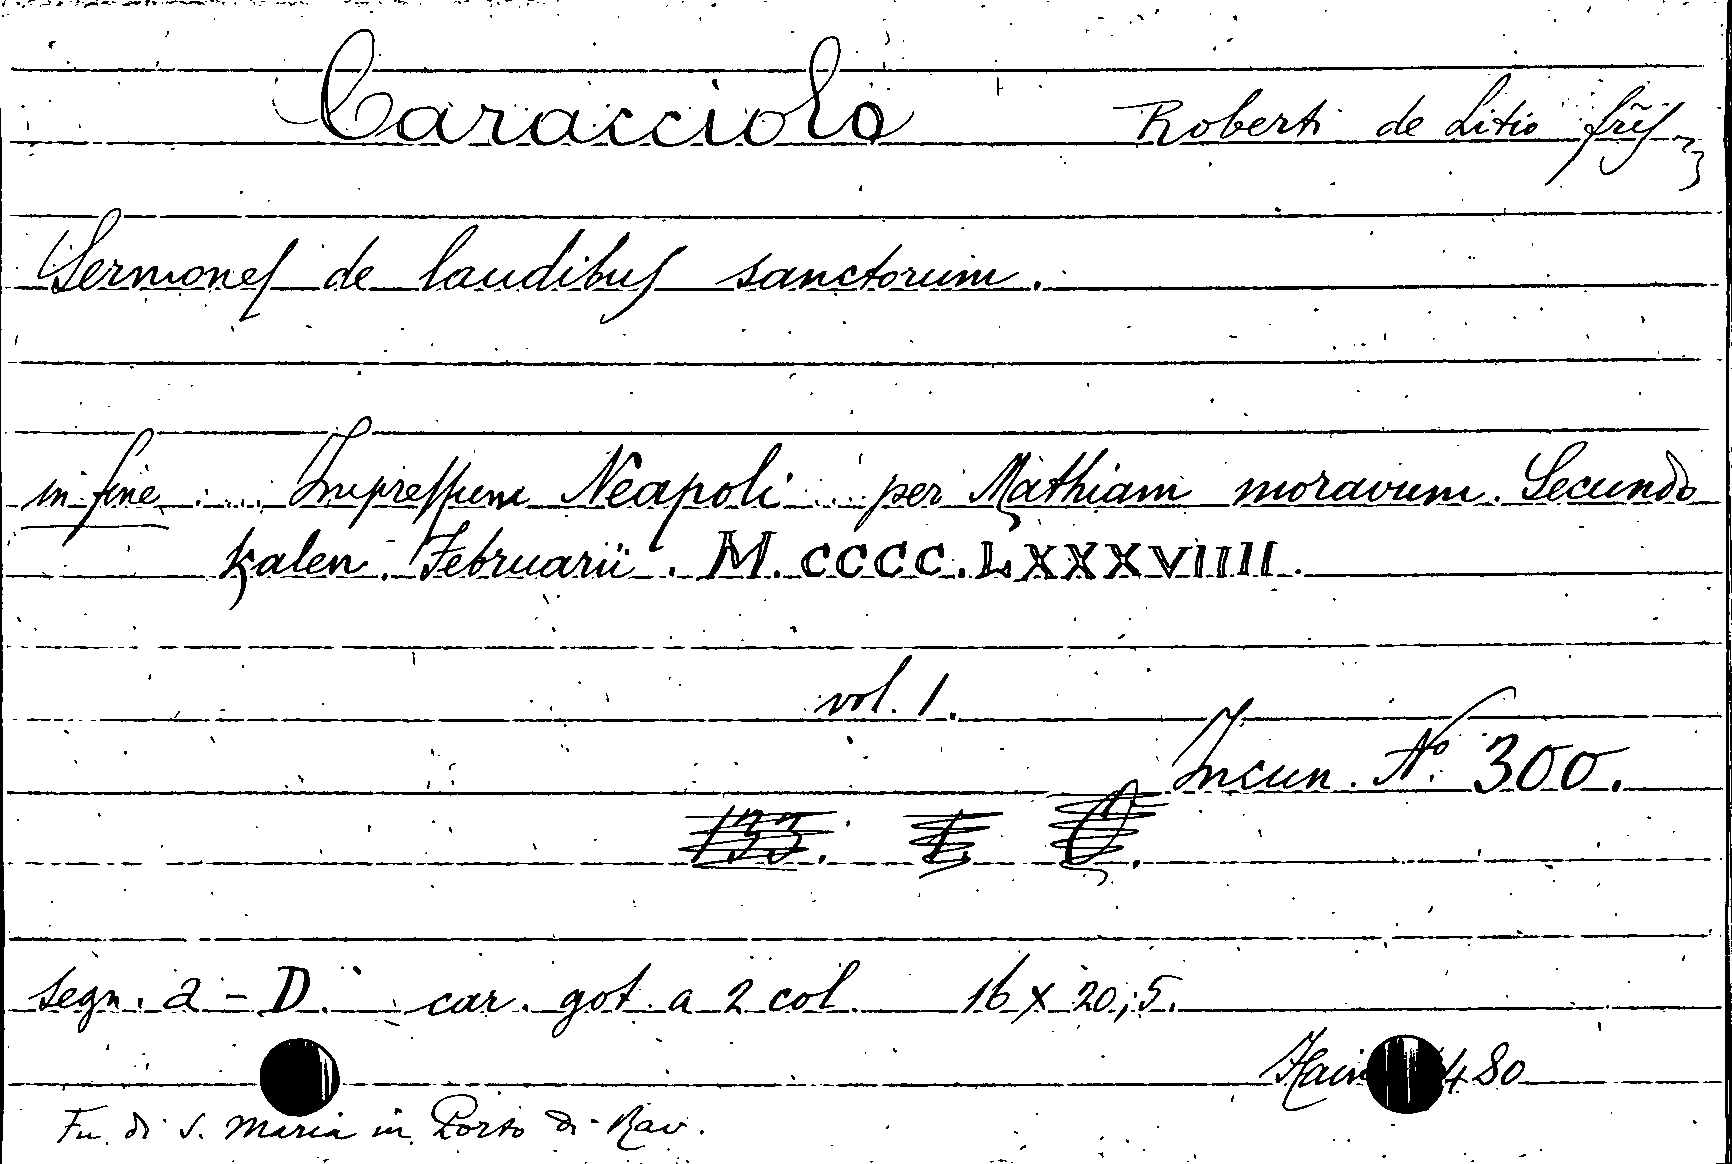 Caracciolo Roberti de Litio frĩſ
Sermoneſ de laudibuſ sanctorum.
in fine .... Impreſſum Neapoli ... per Mathiam moravum. Secundo
kalen. Februarii. M.CCCC.LXXXVIIII.
vol. 1.
Incun. Nº. 300.
133. 1. Q.
segn. a - D. car. got. a 2 col. 16 x 20,5.
480
Fu di S. Maria in Porto di Rav.